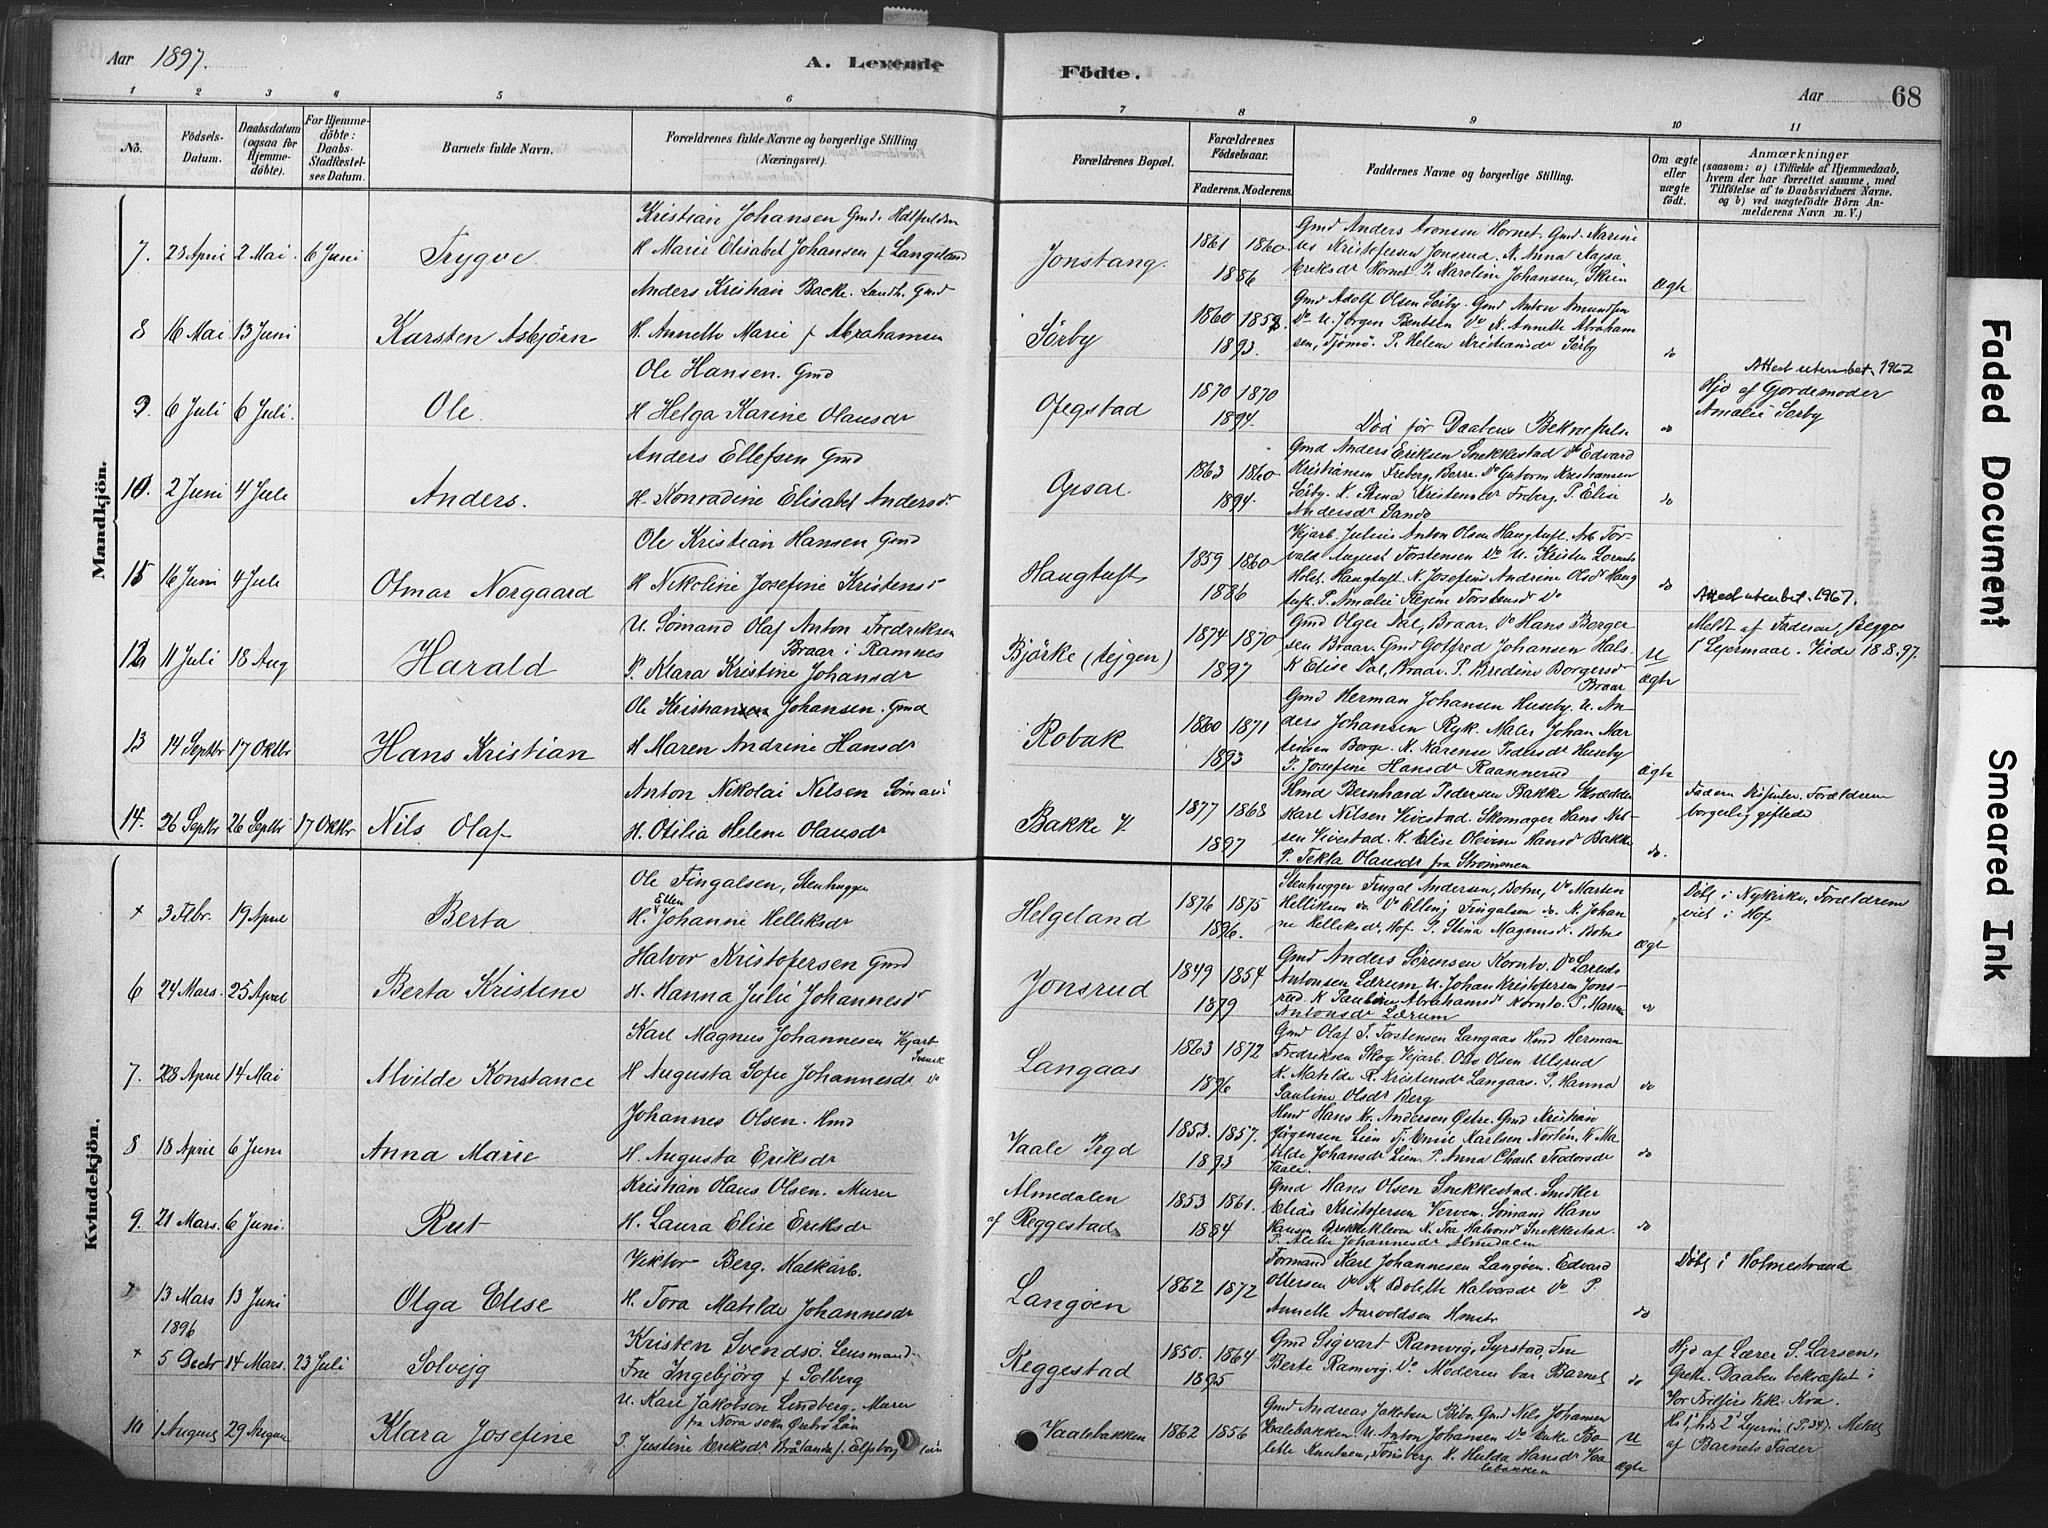 Aar 1897.
A. Levende
Födte.
Aar
68
1 2 3 4 5 6 7 8 9 10 11
No.
Födsels-Datum.
Daabsdatum (ogsaa for Hjemmedöbte).
For Hjemmedöbte: Daabs-Stadfæstelses Datum.
Barnets fulde Navn.
Forældrenes fulde Navne og borgerlige Stilling (Næringsvei).
Forældrenes Bopæl.
Forældrenes Födselsaar.
Faderens. Moderens.
Faddernes Navne og borgerlige Stilling.
Om ægte eller uægte födt.
Anmærkninger
(saasom: a) i Tilfælde af Hjemmedaab, hvem der har forrettet samme, med Tilföielse af to Daabsvidners Navne, og b) ved uægtefödte Börn Anmelderens Navn m. V.)
Mandkjön.
7. 23 April 2 Mai 6 Juni Trygve.
Kristian Johansen Gmd.
H Marie Elisabet Johansen f Langeland
Jonstang. 1861 1860 1886
Gmd Anders Aronsen Hornet. Gmd. Marinius Kristofersen Jonsrud. K Anna Kajsa Eriksdr Hornet. P. Karoline Johansen, Skien
Ægte
8 16 Mai 13 Juni Karsten Asbjörn
Anders Kristian Backe. Landh. Gmd
H. Annette Marie f Abrahamsen
Sörby 1860 1859. 1893.
Gmd Adolf Olsen Sörby. Gmd Anton Amundsen Do U. Jörgen Bentsen Do K. Annette Abrahamsen, Tjömö. P. Helene Kristiansdr Sörby
do
9. 6 Juli 6 Juli. Ole.
Ole Hansen. Gmd
H Helga Karine Olausdr
1870 1870 1894.
Död för Daabens Bekræftelse
do
Attest utenbet. 1962
Hjd af Gjordemoder Amalie Sørby
10. 2 Juni 4 Juli Anders.
Anders Ellefsen Gmd
H. Konradine Elisabet Andersdr
1863 1860 1894.
Gmd Anders Eriksen Snekkestad Do Edvard Kristiansen Freberg, Borre. Do Guttorm Kristiansen Sörby. K. Stina Kristensdr Freberg. P. Elise Andersdr Sande
do
15 16 Juni 4 Juli Otmar Norgaard
Ole Kristian Hansen Gmd
H Nikoline Josefine Kristensdr
Haugtuft 1859 1860 1886
Vejarb. Julius Anton Olsen Haugtuft. Arb. Torvald August Torstensen Do U. Kristen Lorents Holst. Haugtuft. K. Josefine Andrine Olsdr Haugtuft. P. Amalie Regine Torstensdr Do
do
Attest utenbet. 1967.
12 11 Juli 18 Aug Harald
U. Sömand Olaf Anton Fredriksen Braar i Ramnes
P. Klara Kristine Johansdr
Björke (Lejgen) 1874 1870 1897
Gmd Olger Dal, Braar. Do Hans Bergersen Braar. Gmd Gotfred Johansen Hals. K Elise Dal, Braar. P. Bredine Borgersdr Braar
U Ægte
Meldt af Faderen, Begges 1 Lejermaal. Viede 18.8.97.
13 14 Septbr 17 Oktbr Hans Kristian
Ole Kristiansen Johansen. Gmd
H Maren Andrine Hansdr
Robak 1860 1871 1893
Gmd Herman Johansen Huseby. U. Anders Johansen Ryk. Maler Johan Martinsen Borge. K. Karense Pedersdr Huseby P. Josefine Hansdr Raannerud
Ægte
14. 26 Septbr 26 Septbr 17 Oktbr Nils Olaf
Anton Nikolai Nilsen Sömand
H. Otilia Helene Olausdr
Bakke V. 1877 1868 1897
Hmd Bernhard Pedersen Bakke Skrædder Karl Nilsen Vivestad. Skomager Hans Nilsen Vivestad. K. Elise Olevine Hansdr Bakke P. Tekla Olausdr fra Strömmen
do.
Faderen Dissenter. Forældrene borgerlig giftede
Kvindekjön.
+ 3 Febr. 19 April Berta
Ole Fingalsen, Stenhugger
H. Ellen Johanne Helliksdr
Helgeland 1876 1875 1896.
Stenhugger Fingal Andersen, Botne, Do Marten Helliksen do. Do Elling Fingalsen do. K. Johanne Helleksdr, Hof. P. Stina Magnusdr. Botne
Ægte
Döbt i Nykirke, Forældrene viet i Hof
6 24 Mars. 25 April Berta Kristine
Halvor Kristofersen Gmd
H. Hanna Julie Johannesdr
Jonsrud 1849 1854 1879
Gmd Anders Sörensen Kornto. Do Lareds Antonsen Lærum U. Johan Kristofersen Jonsrud. K Pauline Abrahamsdr Kornto. P. Hanna Antonsdr Lærum
do
7. 28 April 14 Mai Alvilde Konstance
Karl Magnus Johannesen Vejarb. Svensk
H Augusta Sofie Johannesdr do
Langaas 1863 1872 1896
Gmd Olaf T. Torstensen Langaas Hmd Herman Fredriksen Skog Vejarb. Olav Olsen Ulsrud K. Matilde R. Kristensdr Langaas. P. Hanna Pauline Olsdr Berg
do
8 18 April 6 Juni Anna Marie
Johannes Olsen. Hmd
H. Augusta Eriksdr
Vaale Prgd 1853. 1857. 1893
Hmd Hans Kr. Andersen Østre. Gmd Kristian Jörgensen Lien Tj. Emil Karlsen Nortén. K Matilde Johansdr Lien. P. Anna Charl. Teodorsdr Vaale.
do
9. 21 Mars. 6 Juni. Rut
Kristian Olaus Olsen. Murer
H. Laura Elise Eriksdr
Almedalen af Reggestad 1853 1861. 1884
Gmd Hans Olsen Snekkestad. Snedker Elias Kristofersen Verven. Sömand Hans Hansen Brekkekleven K. Tea Halvorsdr Snekkestad. P. Alette Johannesdr Almedalen
do
+ 13 Mars 13 Juni Olga Elise
Viktor Berg. Kalkarb.
H. Tora Matilde Johannesdr
Langöen 1862 1872
Formand Karl Johannesen Langöen. Edvard Ottersen Do K. Bolette Halvorsdr Do P. Annette Aaroldsen Hmstr
do
Döbt i Holmestrand
1896
+ 5 Decbr 14 Mars. 23 Juli Solvejg
Kristen Svendsö. Lensmand.
Fru Ingebjörg f Solberg
Reggestad 1850. 1864 1895
Gmd Sigvart Ramvig, Syrstad, Fru Berte Ramvig. Do Moderen bar Barnet
do
Hjd af Lærer S. Larsen, Greke. Daaben bekræftet i Vor Frelsers Kke. Kra.
10 1 August 29 August Klara Josefine
U. Karl Jakobson Lundberg. Murer fra Nora sokn Örebro Län
P. Justine Eriksdr Brålanda s. Elfsborg Län
Vaalebakken 1862 1856
Gmd Andreas Jakobsen Bibo. Gmd Nils Johansen Vaalebakken U. Anton Johansen Do Enke Bolette Knutsen, Tönsberg. K. Hulda Hansdr Vaalebakken
U Ægte
Hs 1', hds 2' Lejerm (P. 34). Meldt af Barnets Fader
Faded Document
Smeared Ink